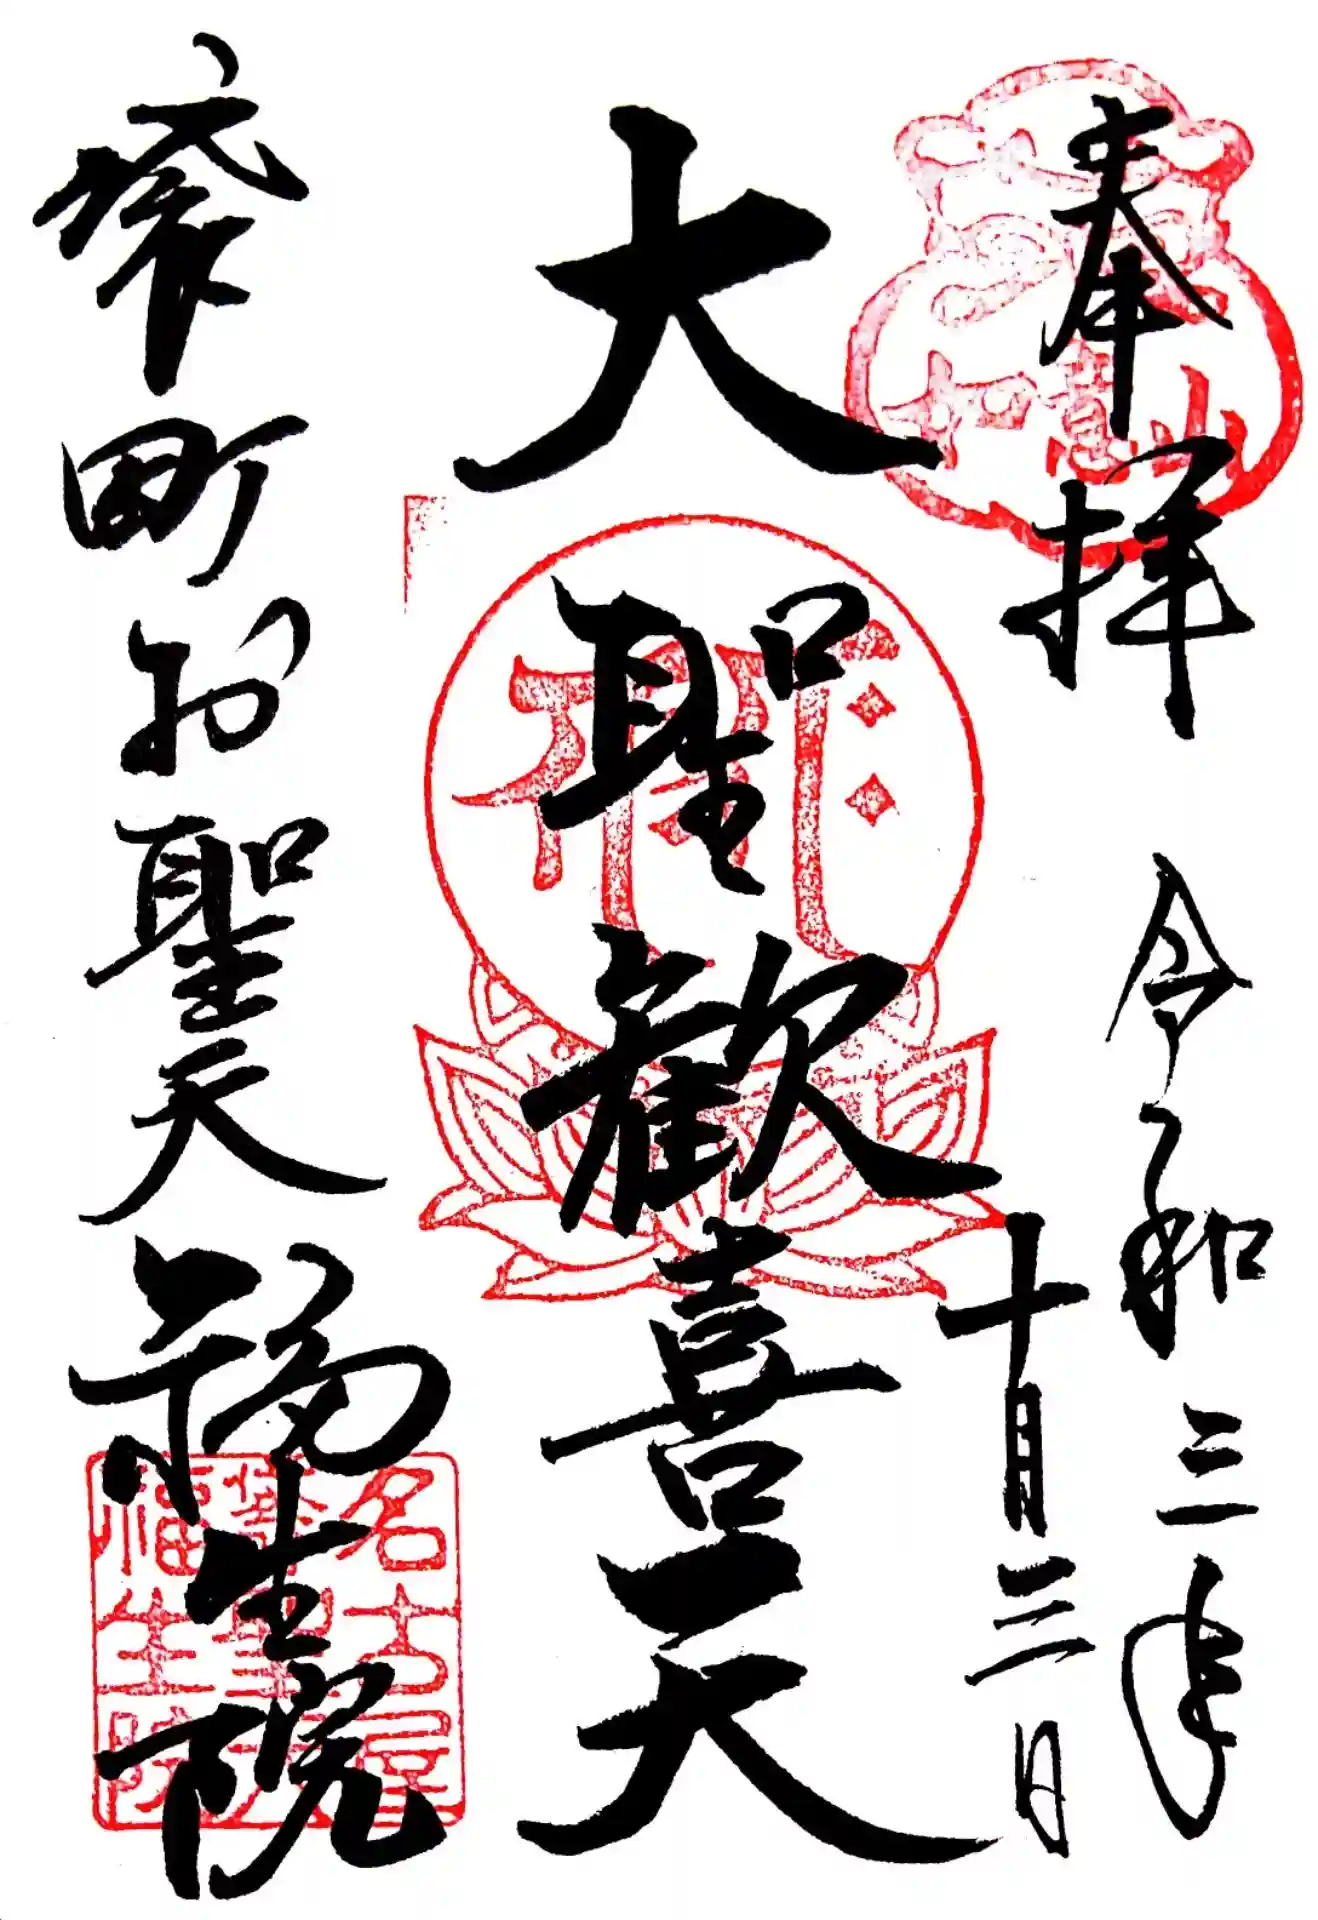 奉拝
令和三年
十月三日
大聖歓喜天
袋町お聖天
福生院
如意山
名古屋
袋聖天
福生院